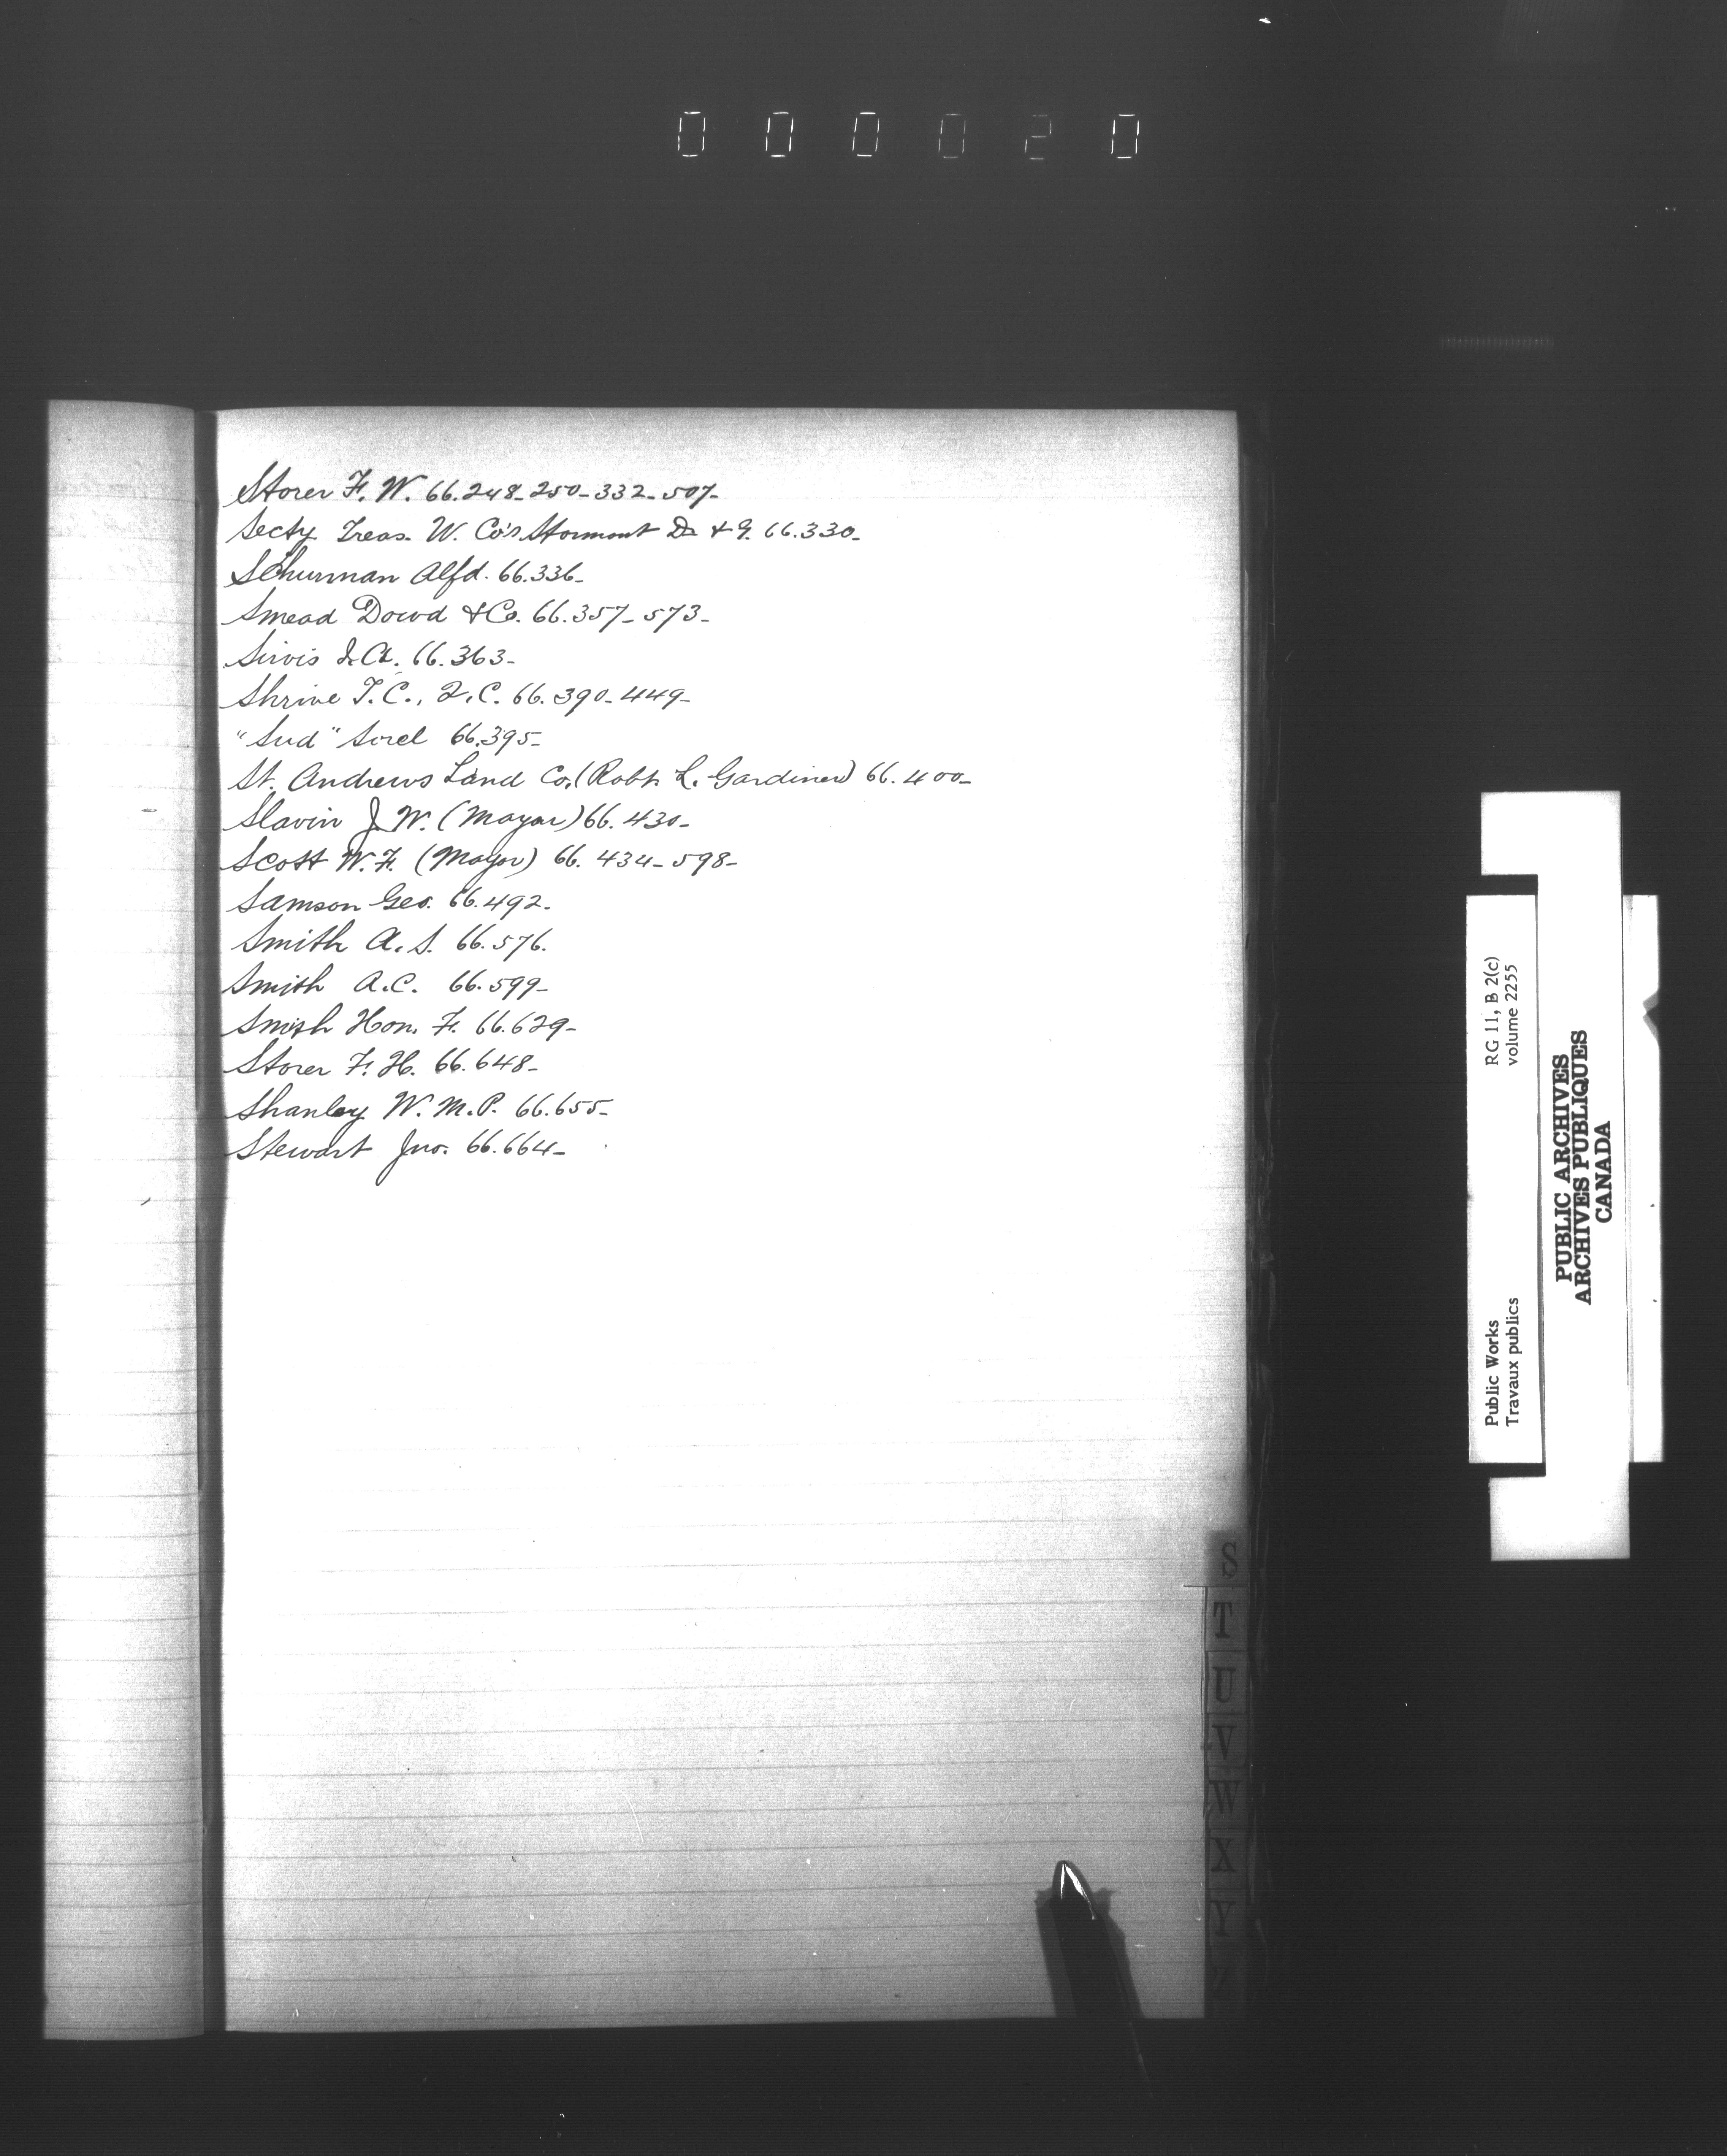 000020
Storer F. W. 66.248-250-332-507-
Secty. Treas. W. Co's Stormont D. & G. 66.330-
Schurman Alfd. 66.336-
Smead Dowd & Co. 66.357-573-
Sirois 66.363-
Shrive T.C., 66.390-449-
"Sud" Sorel 66.395-
St. Andrews Land Co. (Robt. L. Gardiner) 66.400-
Slavin J. W. (Mayor) 66.430-
Scott W. F. (Mayor) 66.434-598-
Samson Geo. 66.492-
Smith A. S. 66.576.
Smith A.C. 66.599-
Smith Hon. F. 66.629-
Storer F. H. 66.648-
Shanley W. M.P. 66.655-
Stewart Jno. 66.664-
S
T
U
V
W
X
Y
Z
Public Works
Travaux publics
RG 11, B 2(c)
volume 2255
PUBLIC ARCHIVES
ARCHIVES PUBLIQUES
CANADA